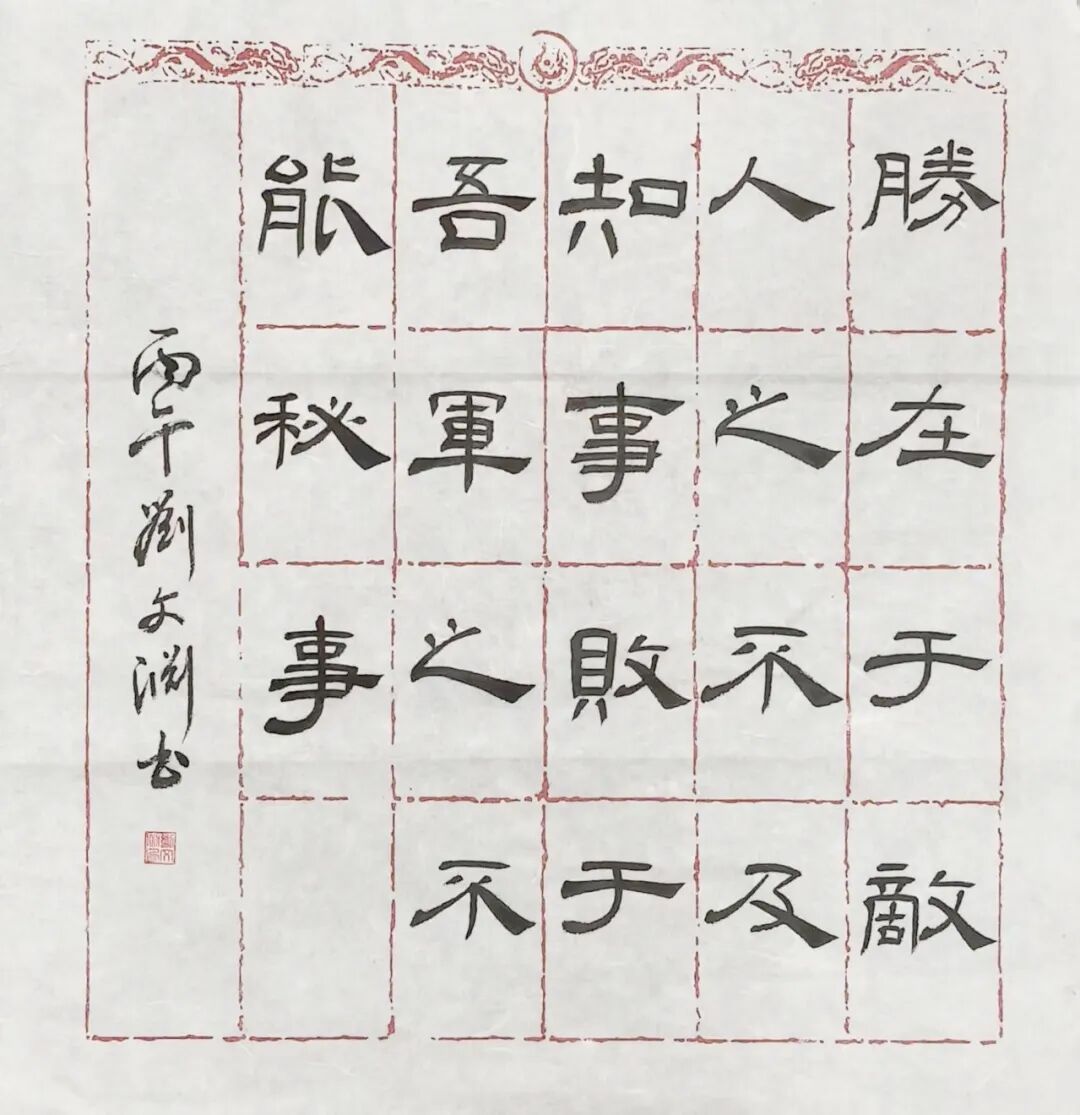 勝在于敵
人之不及
知事敗于
吾軍之不
能秘事
丙午劉文淵书